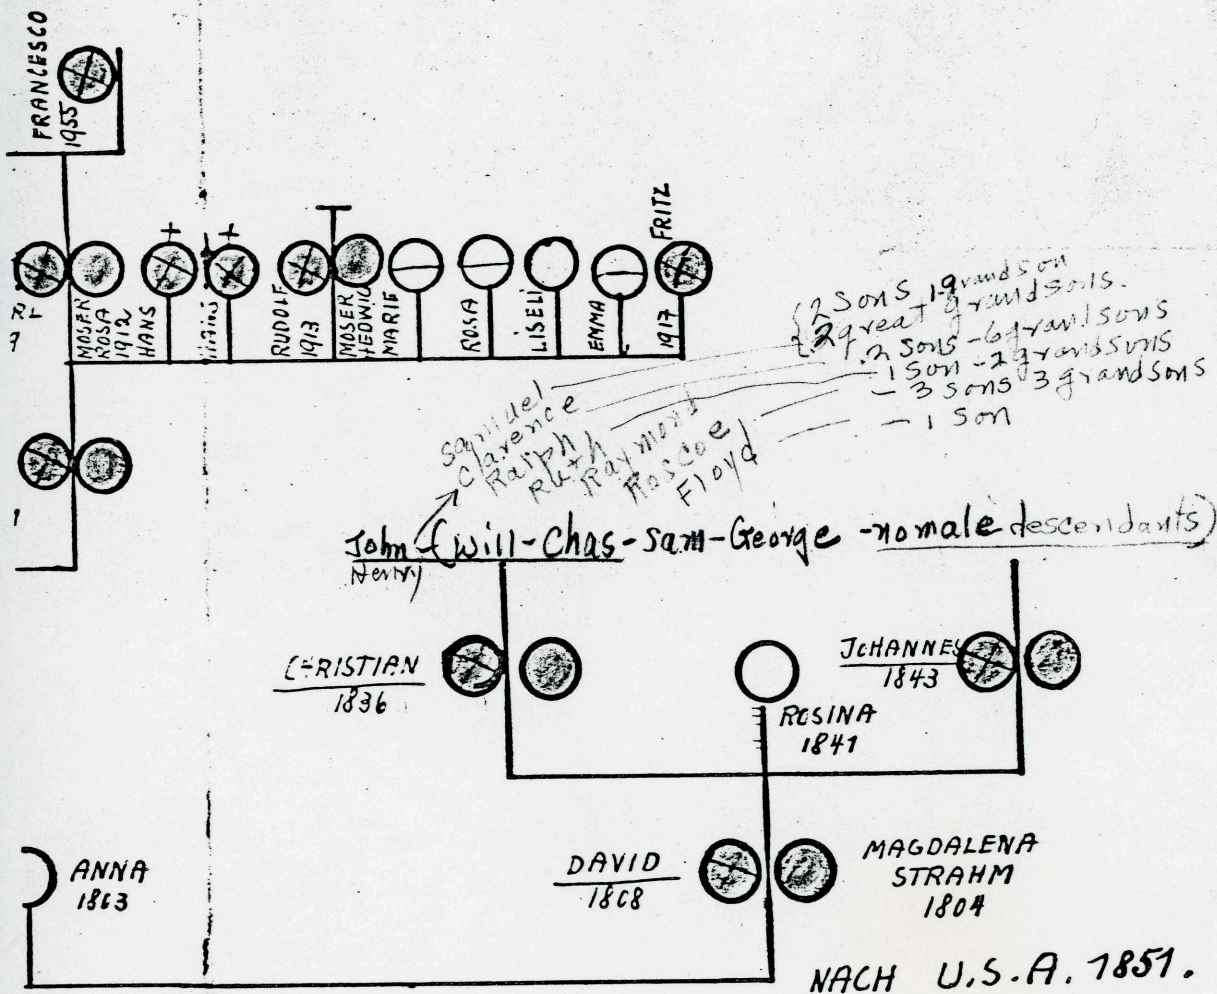 FRANCESCO
1955
RL
MOSER
ROSA
1912
HANS
RUDOLF
1913
MOSER
HEDWIG
MARIE
ROSA
LISELI
EMMA
1917
FRITZ
{2 Sons 1 grandson
{2 great grandsons.
2 sons - 6 grandsons
1 Son - 2 grandsons
- 3 sons 3 grandsons
- 1 Son
Samuel
Clarence
Ralph
Ruth
Raymond
Roscoe
Floyd
John - (Will - Chas - Sam - George - no male descendants)
Henry
CHRISTIAN
1836
ROSINA
1841
JOHANNES
1843
ANNA
DAVID
MAGDALENA
STRAHM
1804
NACH U.S.A. 1851.